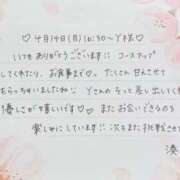 ♡ 4月14日(月)16:30〜 Y様 ♡
いつもありがとうございます!! コースアップ
してくれたり、お食事まで。たくさん甘えさせて
もらっちゃいましたね Yさんのそっと差し出してくれる
優しさが嬉しいです♡ またお会いできるのを
楽しみにしています!! 次もまた
湊